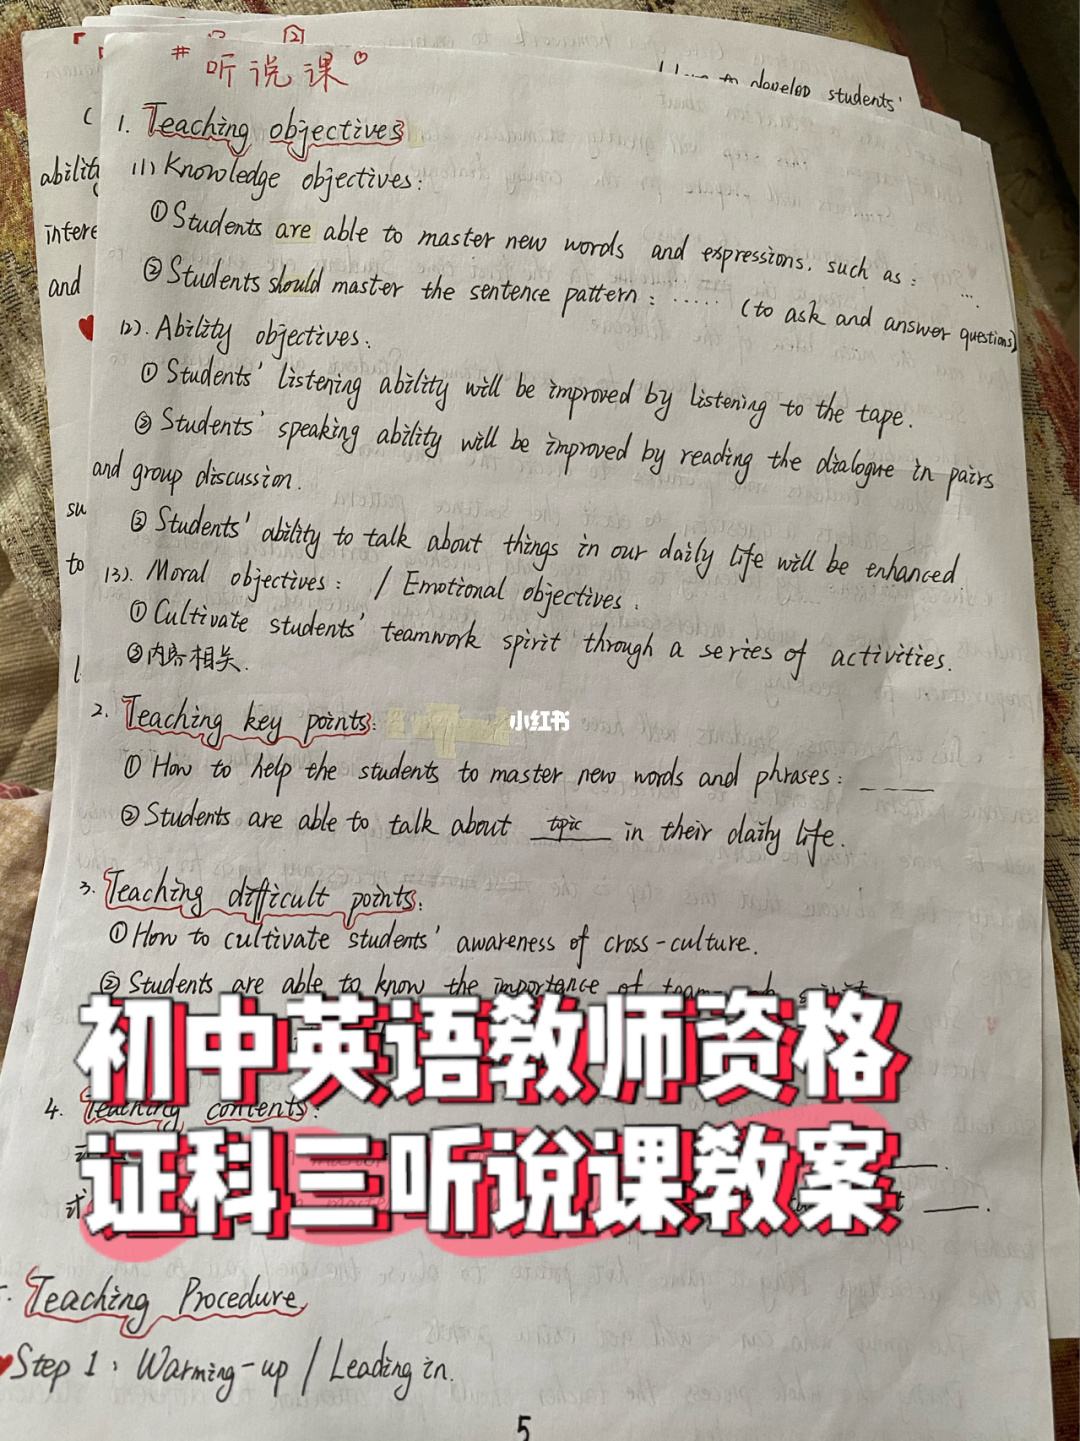 # 听说课
develop students'
1. Teaching objectives
(1) Knowledge objectives:
①Students are able to master new words and expressions. such as: ...
②Students should master the sentence pattern: ...... (to ask and answer questions)
(2). Ability objectives.
① Students' listening ability will be improved by listening to the tape.
② Students' speaking ability will be improved by reading the dialogue in pairs
and group discussion.
③ Students' ability to talk about things in our daily life will be enhanced
(3). Moral objectives: / Emotional objectives.
① Cultivate students' teamwork spirit through a series of activities.
②内容相关.
ability
and
su
to
2. Teaching key points:
小红书
① How to help the students to master new words and phrases: ____
② Students are able to talk about topic in their daily life.
3. Teaching difficult points:
① How to cultivate students' awareness of cross-culture.
② Students are able to know the importance of
初中英语教师资格
4. Teaching contents:
证科三听说课教案
Teaching Procedure
Step 1: Warming-up / Leading in.
5